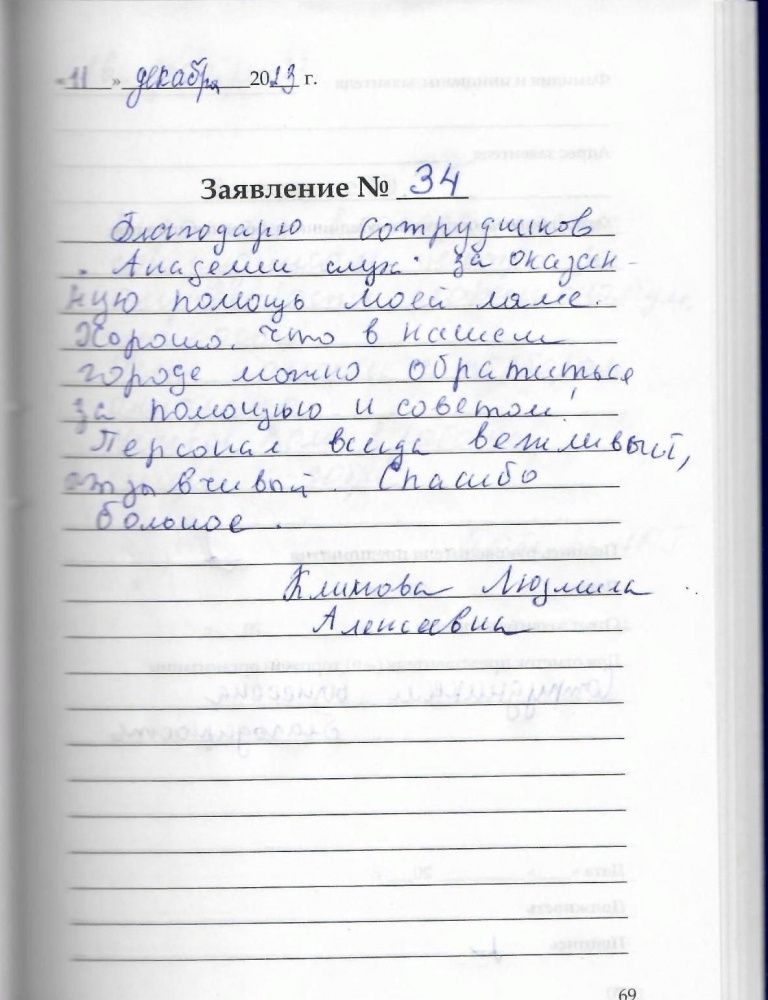 «11» декабря 2023 г.
Заявление № 34
Благодарю сотрудников
"Академии слуха" за оказан-
ную помощь моей маме.
Хорошо, что в нашем
городе можно обратиться
за помощью и советом!
Персонал всегда вежливый,
отзывчивый. Спасибо
большое.
Климова Людмила
Алексеевна
69